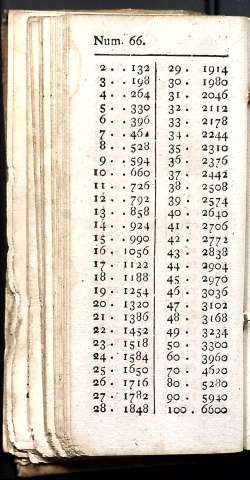 Num. 66.
2 . . 132 29 . 1914
3 . . 198 30 . 1980
4 . . 264 31 . 2046
5 . . 330 32 . 2112
6 . . 396 33 . 2178
7 . . 462 34 . 2244
8 . . 528 35 . 2310
9 . . 594 36 . 2376
10 . . 660 37 . 2442
11 . . 726 38 . 2508
12 . . 792 39 . 2574
13 . . 858 40 . 2640
14 . . 924 41 . 2706
15 . . 990 42 . 2772
16 . 1056 43 . 2838
17 . 1122 44 . 2904
18 . 1188 45 . 2970
19 . 1254 46 . 3036
20 . 1320 47 . 3102
21 . 1386 48 . 3168
22 . 1452 49 . 3234
23 . 1518 50 . 3300
24 . 1584 60 . 3960
25 . 1650 70 . 4620
26 . 1716 80 . 5280
27 . 1782 90 . 5940
28 . 1848 100 . 6600